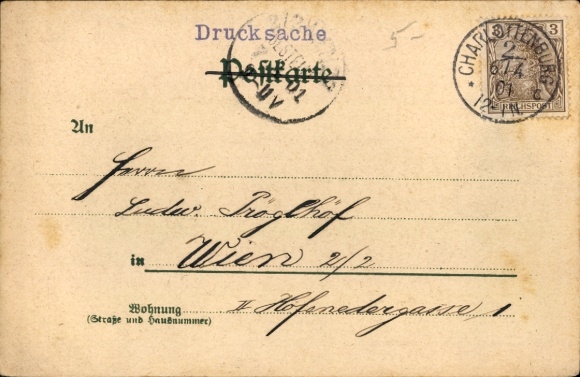 Drucksache
5-
Postkarte
3
REICHSPOST
* CHARLOTTENBURG 2
6/4
01
12-1N
c
An
Herrn
Ludw. Pröglhöf
in Wien 2/2
Wohnung
(Straße und Hausnummer)
II Hofenedergasse 1